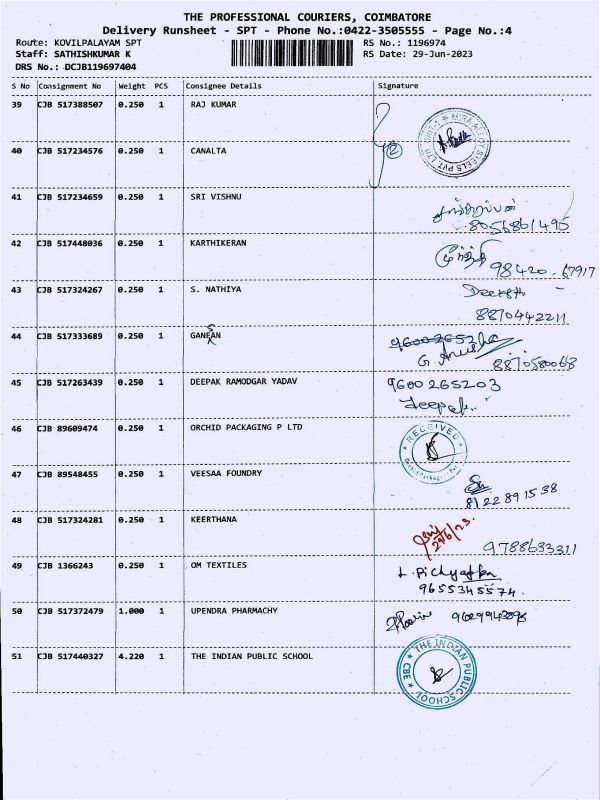 THE PROFESSIONAL COURIERS, COIMBATORE
Delivery Runsheet - SPT - Phone No.:0422-3505555 - Page No.:4
Route: KOVILPALAYAM SPT RS No.: 1196974
Staff: SATHISHKUMAR K RS Date: 29-Jun-2023
DRS No.: DCJB119697404
S No Consignment No Weight PCS Consignee Details Signature
39 CJB 517388507 0.250 1 RAJ KUMAR
40 CJB 517234576 0.250 1 CANALTA 2
41 CJB 517234659 0.250 1 SRI VISHNU
8056861495
42 CJB 517448036 0.250 1 KARTHIKERAN
98420.67917
43 CJB 517324267 0.250 1 S. NATHIYA
8870442211
44 CJB 517333689 0.250 1 GANEAN
G. Anusha 8870580068
45 CJB 517263439 0.250 1 DEEPAK RAMODGAR YADAV 9600265203
Deepak
46 CJB 89609474 0.250 1 ORCHID PACKAGING P LTD RECEIVED
47 CJB 89548455 0.250 1 VEESAA FOUNDRY
8122891538
48 CJB 517324281 0.250 1 KEERTHANA 29/6/23.
9788633311
49 CJB 1366243 0.250 1 OM TEXTILES L. Pichyappa
9655345574.
50 CJB 517372479 1.000 1 UPENDRA PHARMACHY
51 CJB 517440327 4.220 1 THE INDIAN PUBLIC SCHOOL THE INDIAN PUBLIC SCHOOL CBE